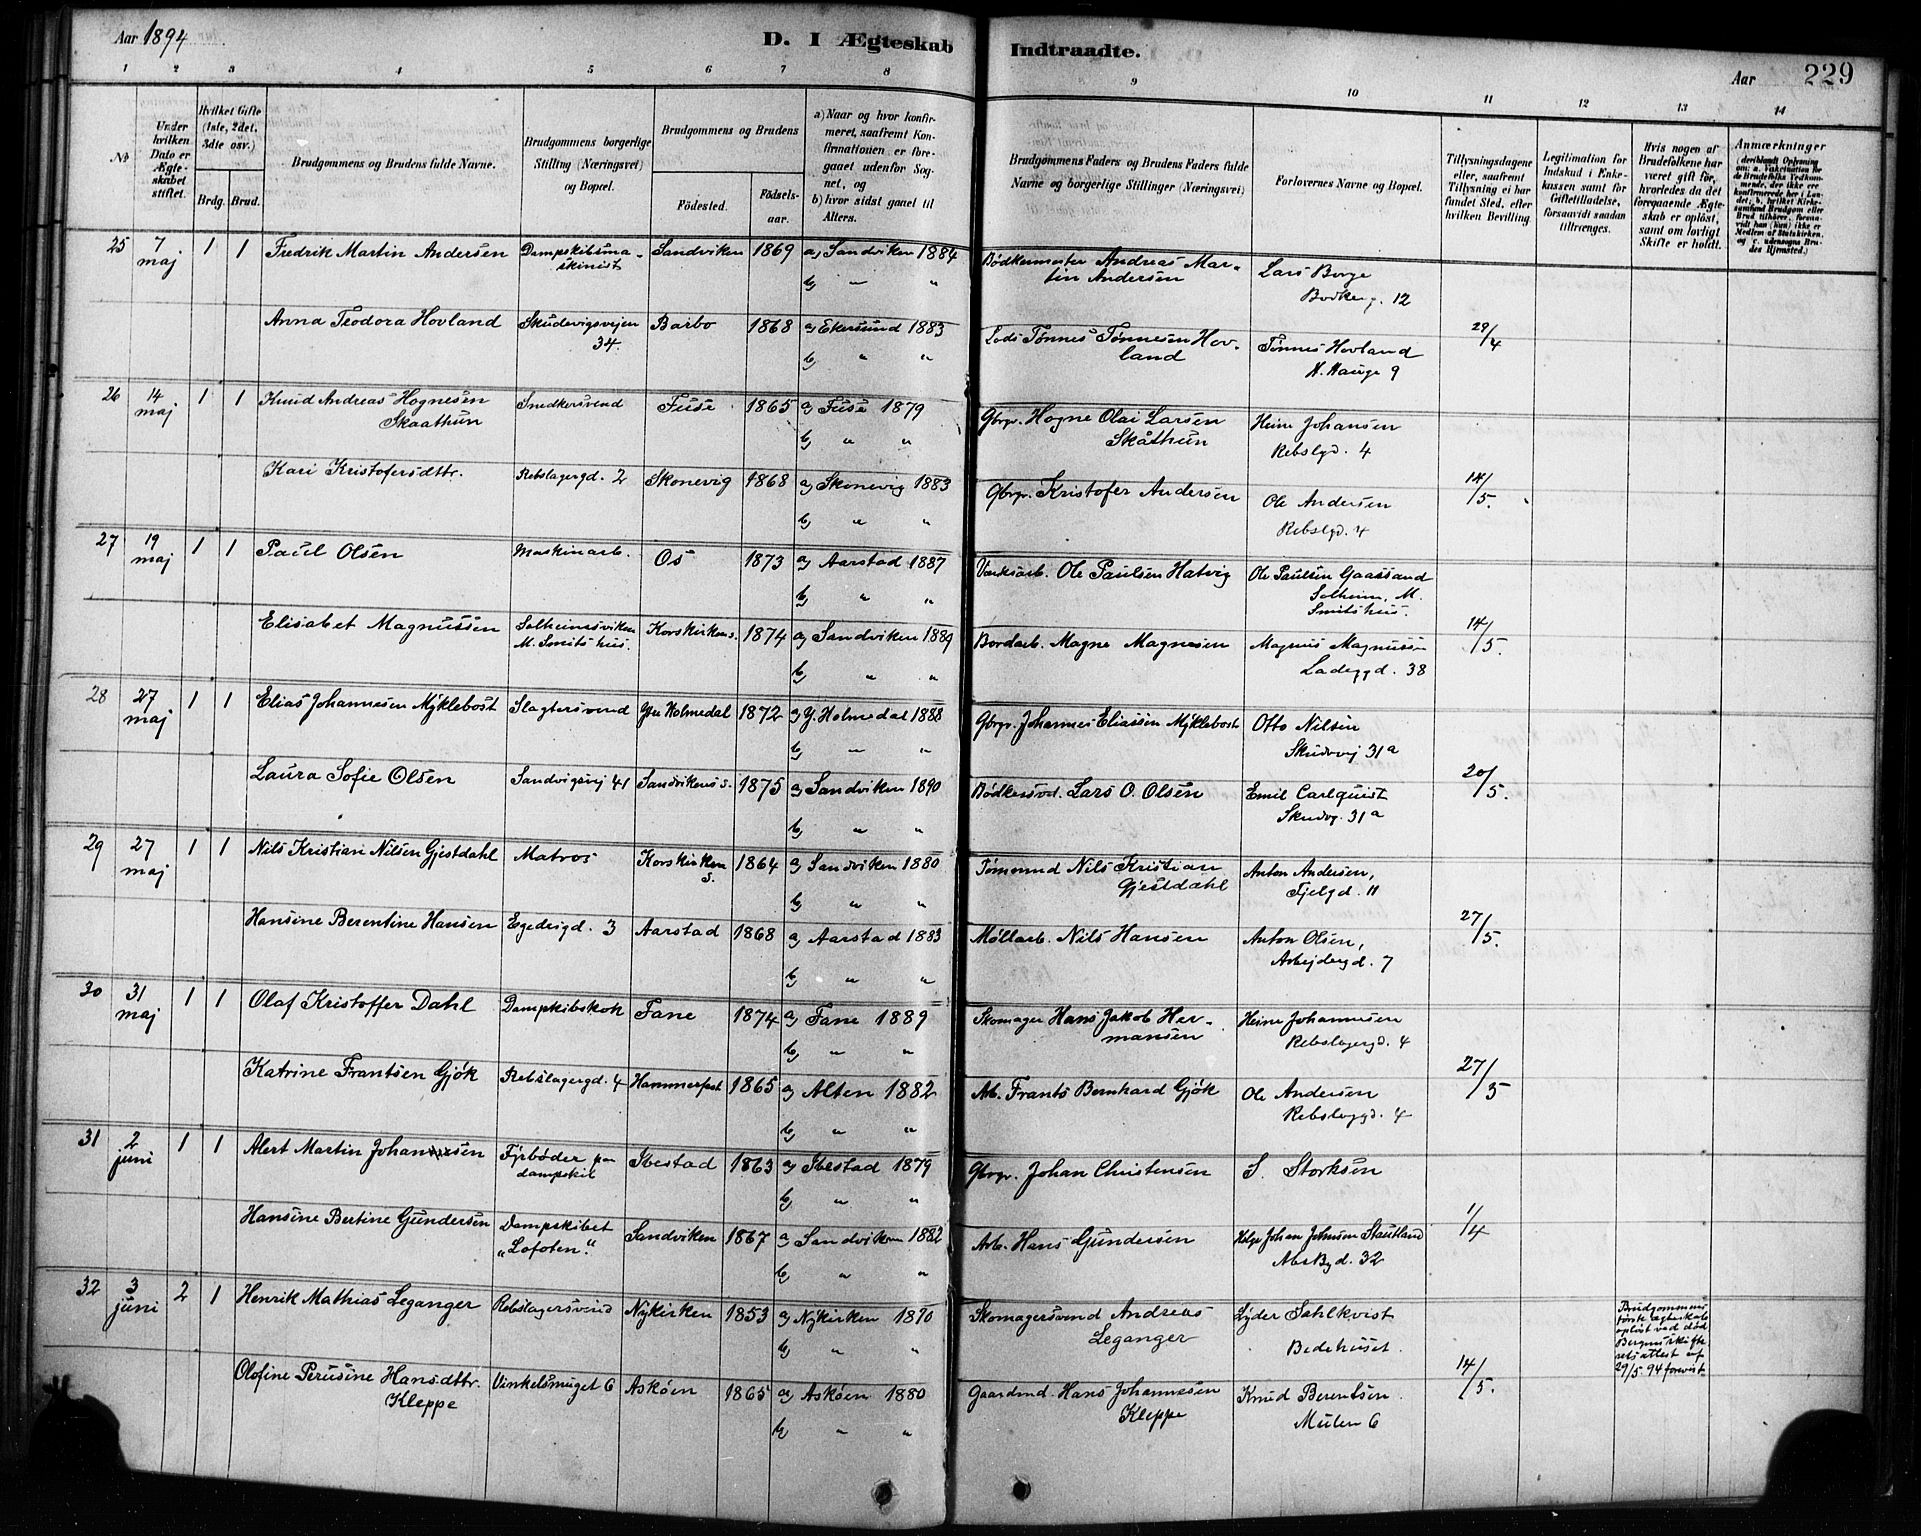 Aar 1894
D. I Ægteskab Indtraadte.
Aar 229
1 2 3 4 5 6 7 8 9 10 11 12 13 14
№
Under hvilken Dato er Ægteskabet stiftet.
Hvilket Gifte (1ste, 2det, 3die osv.)
Brdg. Brud.
Brudgommens og Brudens fulde Navne.
Brudgommens borgerlige Stilling (Næringsvei) og Bopæl.
Brudgommens og Brudens
Fødested. Fødselsaar.
a) Naar og hvor konfirmeret, saafremt Konfirmationen er foregaaet udenfor Sognet, og
b) hvor sidst gaaet til Alters.
Brudgommens Faders og Brudens Faders fulde Navne og borgerlige Stillinger (Næringsvei)
Forlovernes Navne og Bopæl.
Tillysningsdagene eller, saafremt Tillysning ei har fundet Sted, efter hvilken Bevilling
Legitimation for Indskud i Enkekassen samt for Giftetilladelse, forsaavidt saadan tiltrænges.
Hvis nogen af Brudefolkene har været gift før, hvorledes da det foregaaende Ægteskab er opløst, samt om lovligt Skifte er holdt.
Anmærkninger
25 7 maj 1 1 Fredrik Martin Andersen Dampskibsmaskinist Sandviken 1869 a) Sandviken 1884 Bødkermester Andreas Martin Andersen Lars Borge
b) " " Bødkerg. 12
Anna Teodora Hovland Skudevigsvejen 34. Barbo 1868 a) Ekersund 1883 Lods Tønnes Tønnesen Hovland Tønnes Hovland 29/4
b) " " H. Hauge 9
26 14 maj 1 1 Knud Andreas Hognesen Skaathun Snedkersvend Fuse 1865 a) Fuse 1879 Gbrgr. Hogne Olai Larsen Skåthun Heine Johansen
b) " " Rebslgd. 4
Kari Kristofersdttr. Rebslagergd. 2 Skonevig 1868 a) Skonevig 1883 Gbrgr. Kristofer Andersen Ole Andersen 14/5.
b) " " Rebslgd. 4
27 19 maj 1 1 Paul Olsen Maskinarb. Os 1873 a) Aarstad 1887 Værksarb. Ole Paulsen Hatvig Ole Paulsen Gaassand
b) " " Solheim, M. Smitshus.
Elisabet Magnussen Solheimsviken M. Smits hus. Korskirkens. 1874 a) Sandviken 1889 Bordarb. Magne Magnesen Magnus Magnussen 14/5.
b) " " Ladeggd. 38
28 27 maj 1 1 Elias Johannesen Myklebost Slagtersvend Ytre Holmedal 1872 a) Y. Holmedal 1888 Gbrgr. Johannes Eliassen Myklebost Otto Nilsen
b) " " Skudevej 31a
Laura Sofie Olsen Sandvigsvej 41 Sandvikens s. 1875 a) Sandviken 1890 Bødkersvd. Lars O. Olsen Emil Carlquist 20/5.
b) " " Skudvg. 31a
29 27 maj 1 1 Nils Kristian Nilsen Gjestdahl Matros Korskirken s. 1864 a) Sandviken 1880 Tømmermd Nils Kristian Gjestdahl Anton Andersen,
b) " " Fjelgd. 11
Hansine Berentine Hansen Egedesgd. 3 Aarstad 1868 a) Aarstad 1883 Møllarb. Nils Hansen Anton Olsen, 27/5.
b) " " Arbejdergd. 7
30 31 maj 1 1 Olaf Kristoffer Dahl Dampskibskok Fane 1874 a) Fane 1889 Skomager Hans Jakob Hermansen Heine Johannesen
b) " " Rebslagergd. 4
Katrine Frantsen Gjøk Rebslagergd. 4 Hammerfest 1865 a) Alten 1882 Arb. Frants Bernhard Gjøk Ole Andersen 27/5
b) " " Rebslaggd. 4
31 2 juni 1 1 Alert Martin Johansen Fyrbøder paa dampskib Ibestad 1863 a) Ibestad 1879 Gbrgr. Johan Christensen S. Storksen
b) " "
Hansine Bertine Gundersen Dampskibet „Lofoten." Sandviken 1867 a) Sandviken 1882 Arb. Hans Gundersen Helge Johan Johnsen Stautland 1/4
b) " " 32
32 3 juni 2 1 Henrik Mathias Leganger Rebslagersvend Nykirken 1853 a) Nykirken 1870 Skomagersvend Andreas Leganger Lyder Sahlkvist
b) " " Bedehuset.
Brudgommens første ægteskab opløst ved død Bergens skifterets attest af 29/5 94 forevist
Olofine Perusine Hansdttr. Kleppe Vinkelsmuget 6 Askøen 1865 a) Askøen 1880 Gaardmd. Hans Johannesen Kleppe Knud Berentsen 14/5.
b) " " Mulen 6